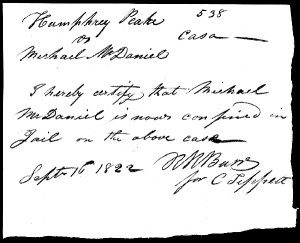 Humphrey Peake 538
vs casa
Michael McDaniel
I hereby certify that Michael
McDaniel is now confined in
Jail on the above casa
Sept 16 1822
for C Tippett